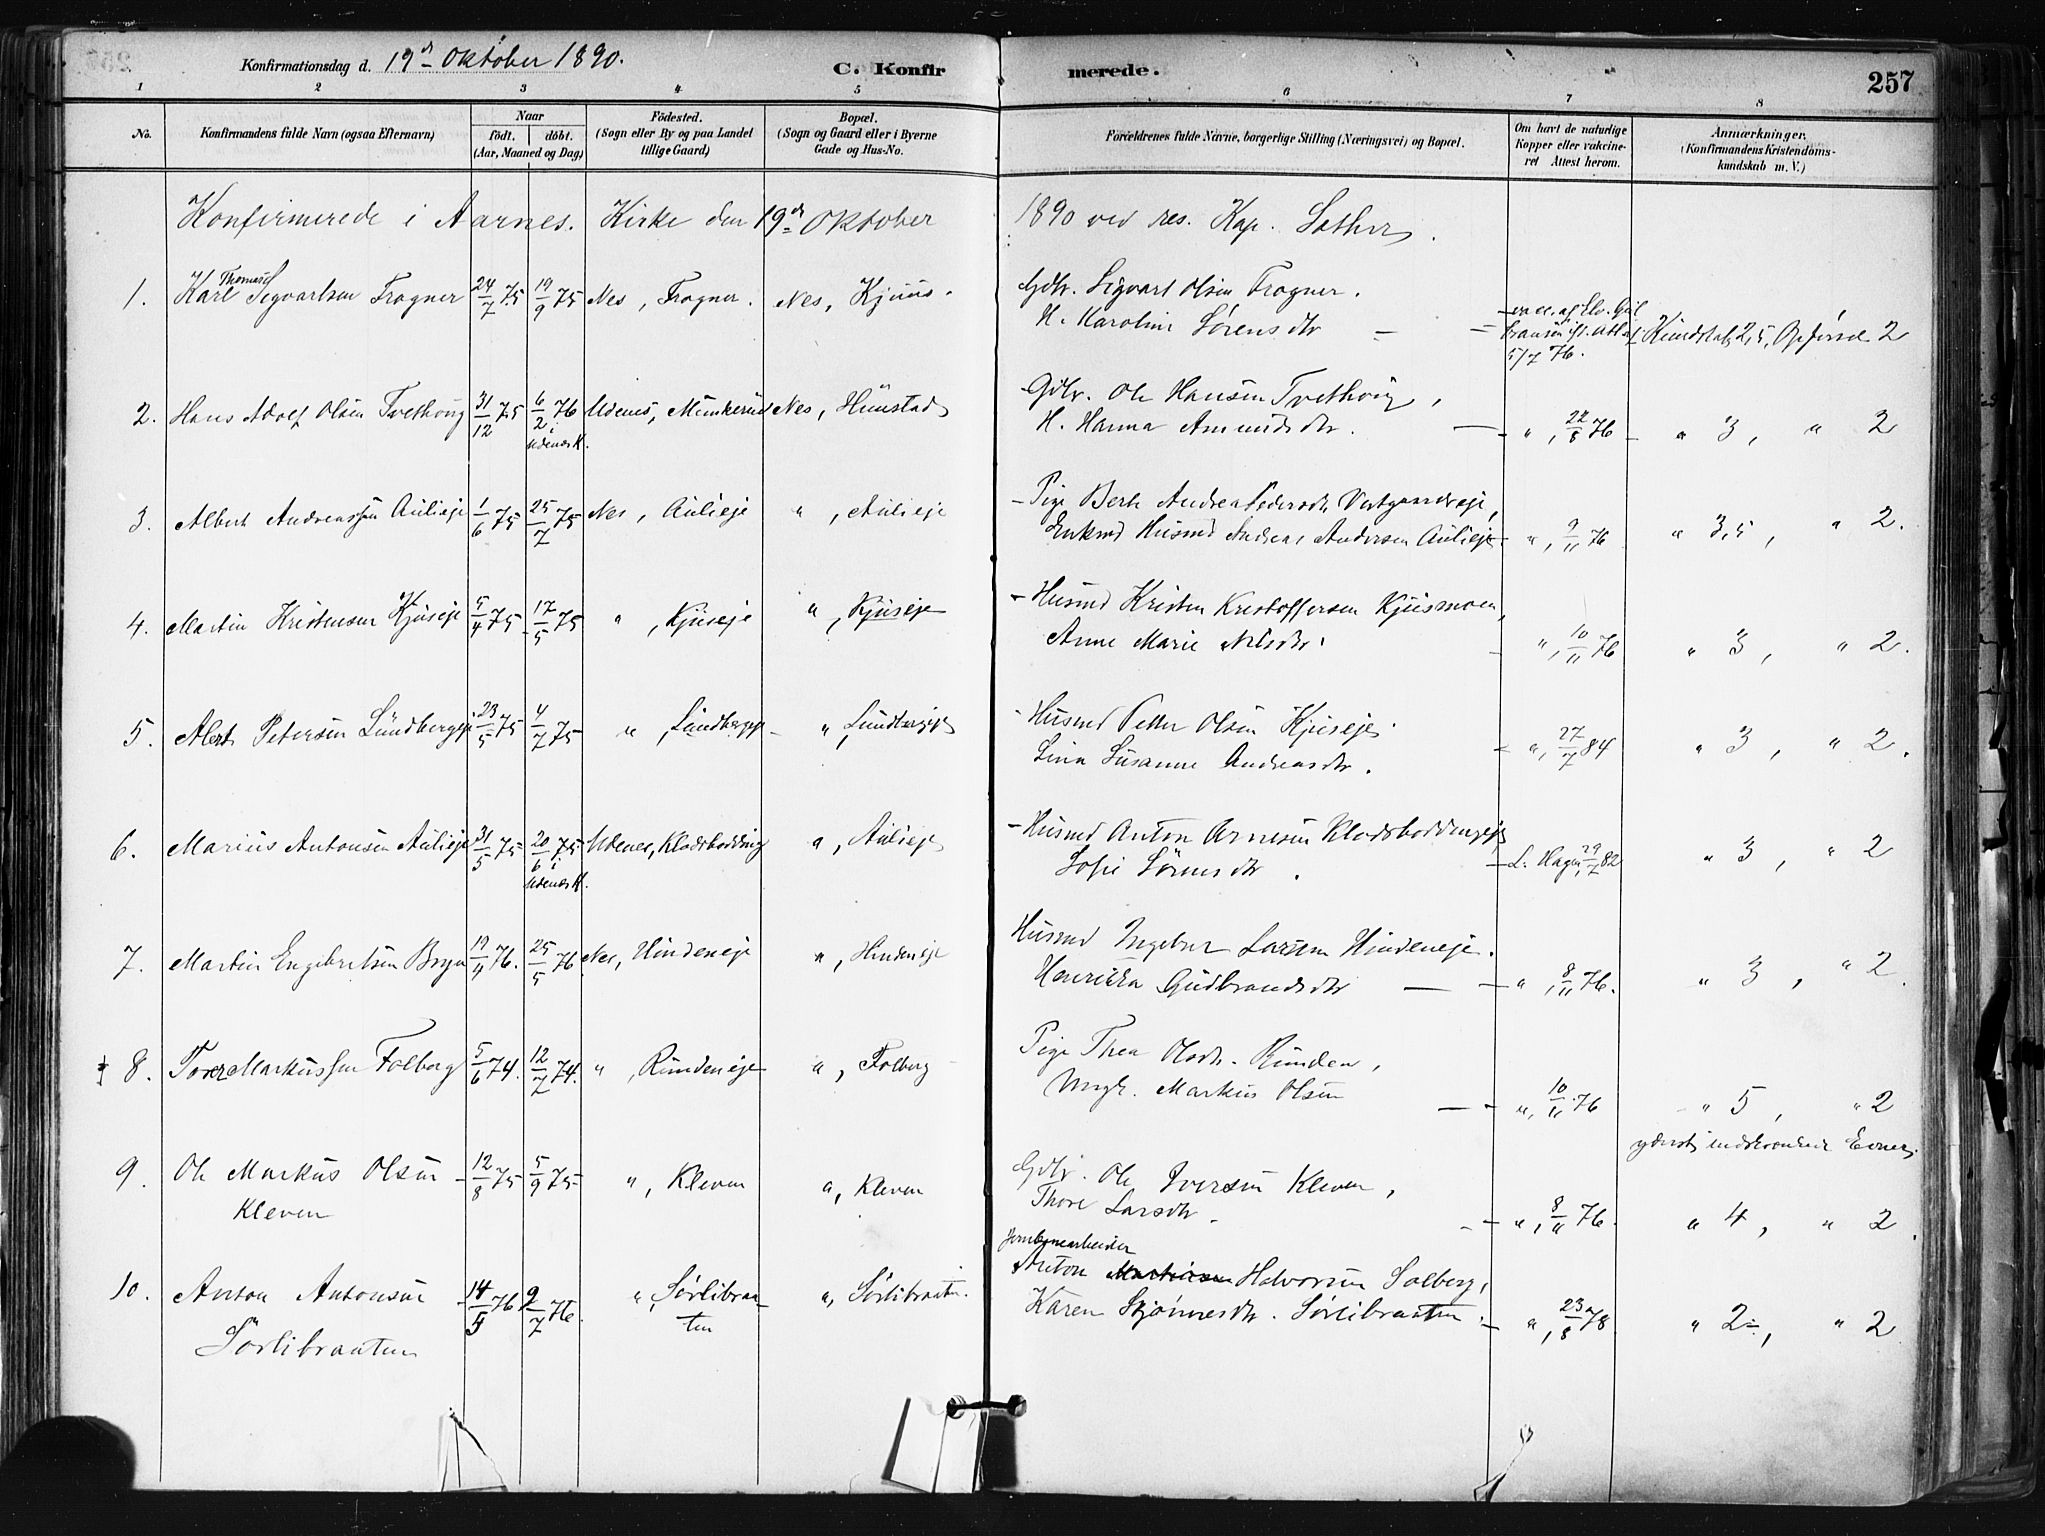 Konfirmationsdag d. 19de Oktober 1890.
C. Konfirmerede.
257
1 2 3 4 5 6 7 8
No.
Konfirmandens fulde Navn (ogsaa Efternavn)
Naar
födt. döbt.
(Aar, Maaned og Dag)
Födested.
(Sogn eller By og paa Landet
tillige Gaard)
Bopæl.
(Sogn og Gaard eller i Byerne
Gade og Hus-No.
Forældrenes fulde Navne, borgerlige Stilling (Næringsvei) og Bopæl.
Om havt de naturlige
Kopper eller vakcine-
ret Attest herom.
Anmærkninger.
(Konfirmandens Kristendoms-
kundskab m. V.)
Konfirmerede i Aarnes Kirke den 19de Oktober 1890 ved res. Kap.
1. Karl Thomas Segvartsen Frogner 24/7 75 19/9 75 Nes, Frogner. Nes, Kjuus.
Gdbr. Sigvart Olsen Frogner.
H. Karoline Sørensdtr
5/7 76. Kundskab 2,5, Opførsel 2
2. Hans Adolf Olsen Tvethoug 31/12 75 6/2 76 i Udenes K. Udenes, Munkerud Nes, Hunstad
Gdbr. Ole Hansen Tvethoug,
H. Hanna Amundsdtr. " , 22/8 76 " 3, " 2
3. Albert Andreassen Aulieje 1/6 75 25/7 75 Nes, Aulieje " , Aulieje
Pige Berte Andrea Pedersdtr Vestgaardseje,
Enkmd Husmd Andreas Andersen Aulieje " , 9/11 76 " 3,5, " 2.
4. Martin Kristensen Kjuseje 5/4 75 17/5 75 " , Kjuseje " , Kjuseje
Husmd Kristen Kristoffersen Kjusmoen,
Anne Marie Nilsdtr. " , 10/11 76 " 3, " 2.
5. Albert Petersen Lundbergeje 23/5 75 4/7 75 " , Lundbergeje " , Lundbergeje
Husmd Petter Olsen Kjuseje.
Lina Susanne Andreasdtr. " , 27/7 84 " 3, " 2.
6. Marius Antonsen Aulieje 31/5 75 20/6 75 i Udenes K. Udenes, Kladsbodding " , Aulieje
Husmd Anton Arnesen Kladsboddingeje
Sofie Sørensdtr. L. Hagen, 29/7 82 " 3, " 2
7. Martin Engebretsen Bryn 19/4 76. 25/5 76 Nes, Hindeneje " , Hindeneje
Husmd Ingebret Larsen Hindeneje.
Henrikka Gudbrandsdtr " , 8/11 76. " 3, " 2.
8. Tover Markussen Folberg 5/6 74. 12/7 74. " , Rundeneje " , Folberg
Pige Thea Olsdtr. Runden,
Ungk. Markus Olsen " , 10/11 76 " 5, " 2
yderst indskrænkede Evner.
9. Ole Markus Olsen 12/8 75 5/9 75 " , Kleven " , Kleven
Kleven
Gdbr. Ole Iversen Kleven,
Thore Larsdtr. " , 8/11 76. " 4, " 2.
10. Anton Antonsen 14/5 76 9/7 76. " , Sørlibraa- " , Sørlibraaten.
Sørlibraaten ten
Jernbanearbeider
Anton Halvorsen Solberg,
Karen Skjønnesdtr. Sørlibraaten. " , 23/8 78. " 2, " 2